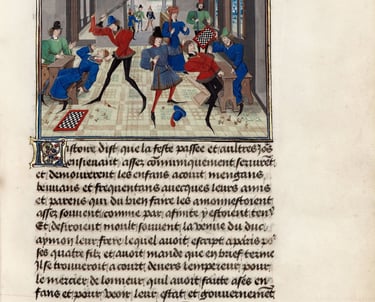 Listoire dist que la feste passee et aultres Jos
ensieuant assez
et demourerent les enfans a court mengans
beuuans et frequentans auecques leurs amis
et parens qui du bien faire les amonnestoient
assez souuent comme par afinite y estoient
Et desiroient moult souuent la venue du duc
aymon leur frere lequel auoit escript a paris
ses quatre filz et auoit mande que en brief terme
Il se trouueroit a court deuers lempereur pour
le mercier de lonneur quil auoit faitte a ses en
fans et pour veoir leur estat et gouuernement